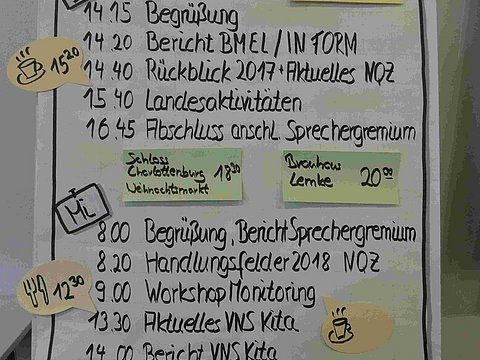 14.15 Begrüßung
14.20 Bericht BMEL / IN FORM
15²⁰
14.40 Rückblick 2017 + Aktuelles NQZ
15.40 Landesaktivitäten
16.45 Abschluss anschl. Sprechergremium
Schloss
Charlottenburg 18³⁰
Weihnachtsmarkt
Brauhaus
Lemke 20⁰⁰
Mi
8.00 Begrüßung, Bericht Sprechergremium
8.20 Handlungsfelder 2018 NQZ
12³⁰
9.00 Workshop Monitoring
13.30 Aktuelles VNS Kita
14.00 Bericht VNS Kita